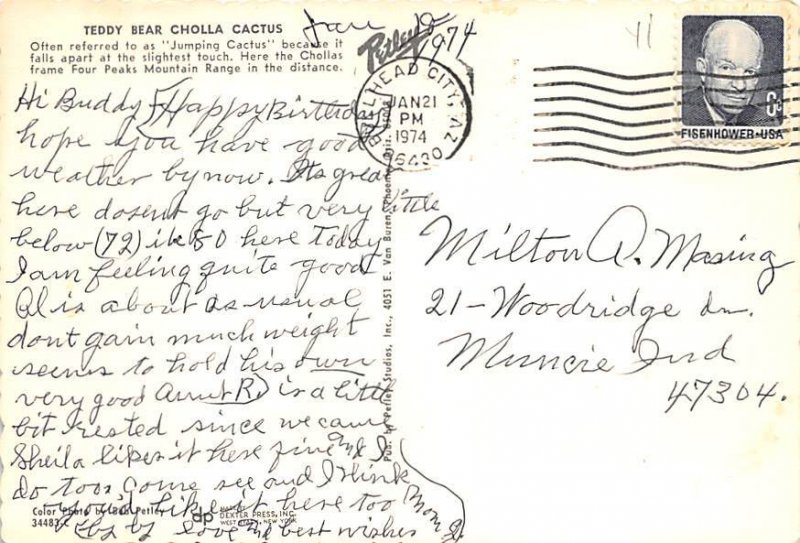 TEDDY BEAR CHOLLA CACTUS
Often referred to as "Jumping Cactus" because it
falls apart at the slightest touch. Here the Chollas
frame Four Peaks Mountain Range in the distance.
Petley
1974
BULLHEAD CITY, AZ
JAN 21
PM
1974
86430
6c
EISENHOWER·USA
Hi Buddy Happy Birthday
hope you have good
weather by now. Its great
here dosent go but very little
below (72) is 80 here Today
I am feeling quite good
Al is about as usual
dont gain much weight
seems to hold his own
very good Aunt R. is a little
bit rested since we came
Sheila likes it here fine and I
do too. Come see and I think
you'd like it here too
by love and best wishes
Mom G.
Milton A. Masing
21-Woodridge Ln.
Muncie Ind
47304.
Pub. by Petley Studios, Inc., 4051 E. Van Buren, Phoenix, Ariz.
Color Photo by Bob Petley
34483-C
dp
DEXTER PRESS, INC.
WEST NYACK, NEW YORK